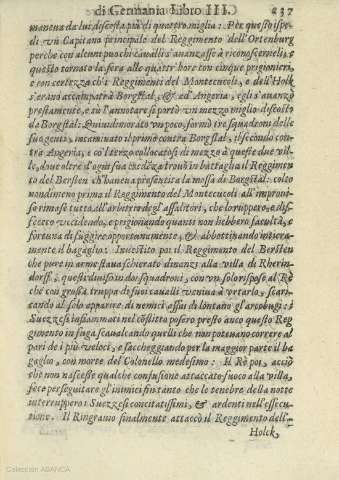 di Germania Libro III. 237
maneua da lui discosta più di quattro miglia: Per questo ispe-
di vn Capitano principale del Reggimento dell'Ortenburg
perche con alcuni puochi caualli s'auanzasse à riconoscerneli, e
questo tornato la sera alle quatt'hore con cinque prigionieri,
e con certezza ch'i Reggimenti del Montecucoli, e dell'Holk
s'erano accampati à Borgstal, & ad Angeria, egli s'auanzò
prestamente, e sù l'annotare si portò vn mezzo miglio discosto
da Borgstal: Quiui dimorato vn poco, formò tre squadroni delle
sue genti, incaminato il primo contra Borgstal, il secondo con-
tra Angeria, e col terzo collocatosi di mezzo à queste due vil-
le, due oltre d'ogni sua credenza trouò in battaglia il Reggimen-
to del Bersten ch'haueua presentita la mossa da Borgstal: colto
nondimeno prima il Reggimento del Montecucoli all'improui-
so rimase tutto all'arbitrio degl'assalitori, che lo ruppero, e dis-
fecero vccidendo, e prigionando quanti non hebbero facoltà, e
fortuna di fuggire opportunamente, & abbottinando intiera-
mente il bagaglio. Inuestito poi il Reggimento del Bersten
che pure in arme staua schierato dinanzi alla villa di Rhein-
dorff, questi diuisi in due squadroni, con vn solo rispose al Rè
che con grossa truppa di suoi caualli veniua à vrtarlo, scari-
cando al solo apparire di nemici assai di lontano gl'arcobugi: i
Suezzesi infiammati nel conflitto posero presto anco questo Reg-
gimento in fuga, scaualcando quelli che non poteuano correre al
pari de i più veloci, e saccheggiando per la maggior parte il ba-
gaglio, con morte del Colonello medesimo: Il Rè poi, acciò
che non nascesse qualche confusione attaccato fuoco alla villa,
fece perseguitare gl'inimici fin tanto che le tenebre della notte
interruppero i Suezzesi concitatissimi, & ardenti nell'essecu-
zione. Il Ringrauio finalmente attaccò il Reggimento dell'
Holck,
Colección ABANCA